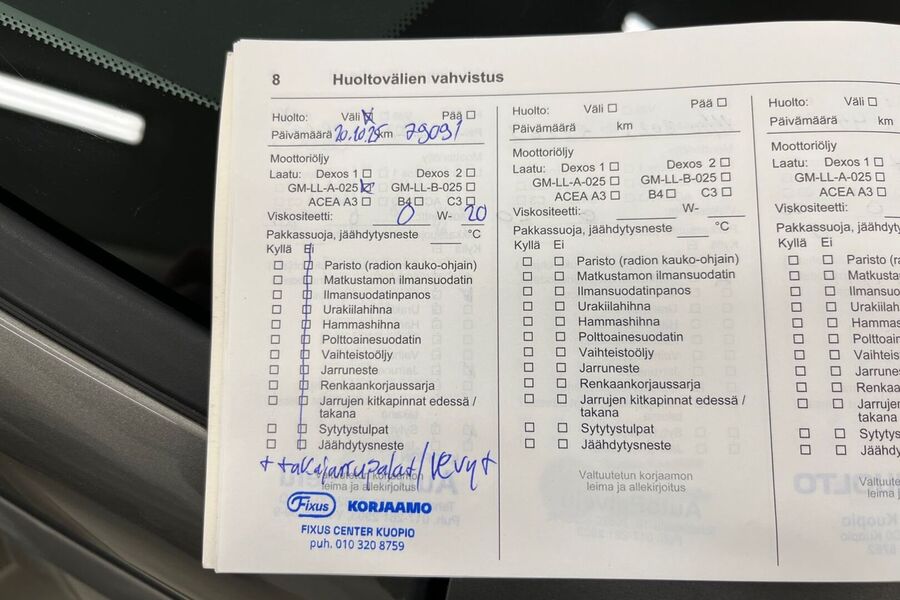 8 Huoltovälien vahvistus
Huolto: Väli Pää
Päivämäärä 20.10.25 km 79091
Moottoriöljy
Laatu: Dexos 1 Dexos 2
GM-LL-A-025 GM-LL-B-025
ACEA A3 B4 C3
Viskositeetti: 0 W- 20
Pakkassuoja, jäähdytysneste °C
Kyllä Ei
Paristo (radion kauko-ohjain)
Matkustamon ilmansuodatin
Ilmansuodatinpanos
Urakiilahihna
Hammashihna
Polttoainesuodatin
Vaihteistoöljy
Jarruneste
Renkaankorjaussarja
Jarrujen kitkapinnat edessä /
takana
Sytytystulpat
Jäähdytysneste
+ takajarrupalat/levyt
Valtuutetun korjaamon
leima ja allekirjoitus
Fixus KORJAAMO
FIXUS CENTER KUOPIO
puh. 010 320 8759
Huolto: Väli Pää
Päivämäärä km
Moottoriöljy
Laatu: Dexos 1 Dexos 2
GM-LL-A-025 GM-LL-B-025
ACEA A3 B4 C3
Viskositeetti: W-
Pakkassuoja, jäähdytysneste °C
Kyllä Ei
Paristo (radion kauko-ohjain)
Matkustamon ilmansuodatin
Ilmansuodatinpanos
Urakiilahihna
Hammashihna
Polttoainesuodatin
Vaihteistoöljy
Jarruneste
Renkaankorjaussarja
Jarrujen kitkapinnat edessä /
takana
Sytytystulpat
Jäähdytysneste
Valtuutetun korjaamon
leima ja allekirjoitus
Huolto: Väli
Päivämäärä km
Moottoriöljy
Laatu: Dexos 1
GM-LL-A-025
ACEA A3
Viskositeetti:
Pakkassuoja, j
Kyllä Ei
Paristo (ra
Matkustam
Ilmansuo
Urakiila
Hammash
Polttoain
Vaihteis
Jarrune
Renkaa
Jarrujen
takana
Sytytys
Jäähdy
Valtuute
leima ja